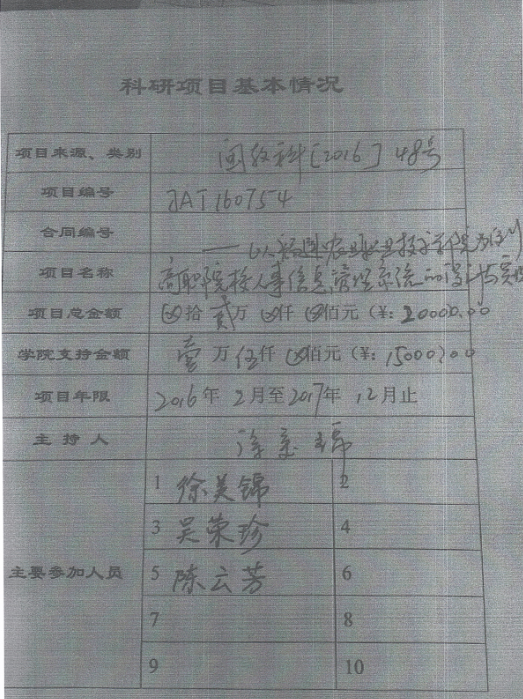 科研项目基本情况
项目来源、类别 闽教科[2016]48号
项目编号 JAT160754
合同编号
——以福建农业职业技术学院为例
项目名称 高职院校人事信息管理系统的设计与实现
项目总金额 ⊗拾贰万⊗仟⊗佰元(¥:20000.00
学院支持金额 壹万伍仟⊗佰元(¥:15000.00
项目年限 2016年2月至2017年12月止
主持人 徐美锦
主要参加人员
1 徐美锦 2
3 吴荣珍 4
5 陈云芳 6
7 8
9 10